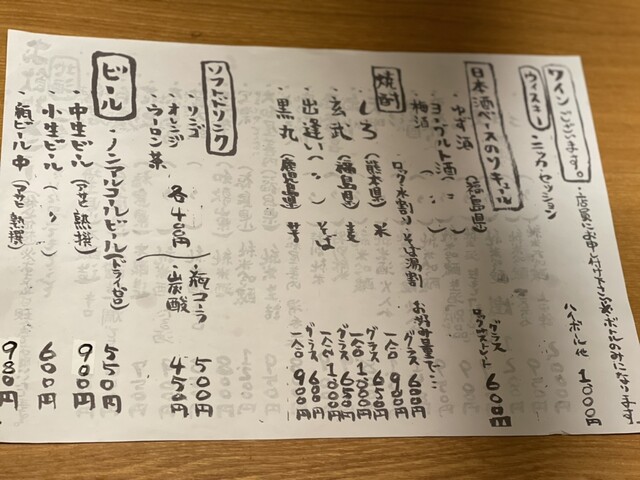 ワインございます。
・店員にお申し付け下さい※ボトルのみになります
ウィスキー
・ニッカ セッション
ハイボール他 1000円
日本酒ベースのリキュール
・ゆず酒（福島県）
・ヨーグルト酒（〃）
・梅酒（〃）
グラス
ロック・ストレート 600円
焼酎
ロック・水割り・そば湯割 お好み量で…
・しろ（熊本県）米 グラス 600円
一合 900円
・玄武（福島県）麦 グラス 650円
一合 1000円
・出逢い（〃）そば グラス 650円
一合 1000円
・黒丸（鹿児島県）芋 グラス 600円
一合 900円
ソフトドリンク
・リンゴ
・オレンジ
・ウーロン茶
各400円
・瓶コーラ 500円
・炭酸 450円
ビール
・ノンアルコールビール（ドライゼロ） 550円
・中生ビール（アサヒ熟撰） 900円
・小生ビール（〃） 600円
・瓶ビール中（アサヒ熟撰） 980円